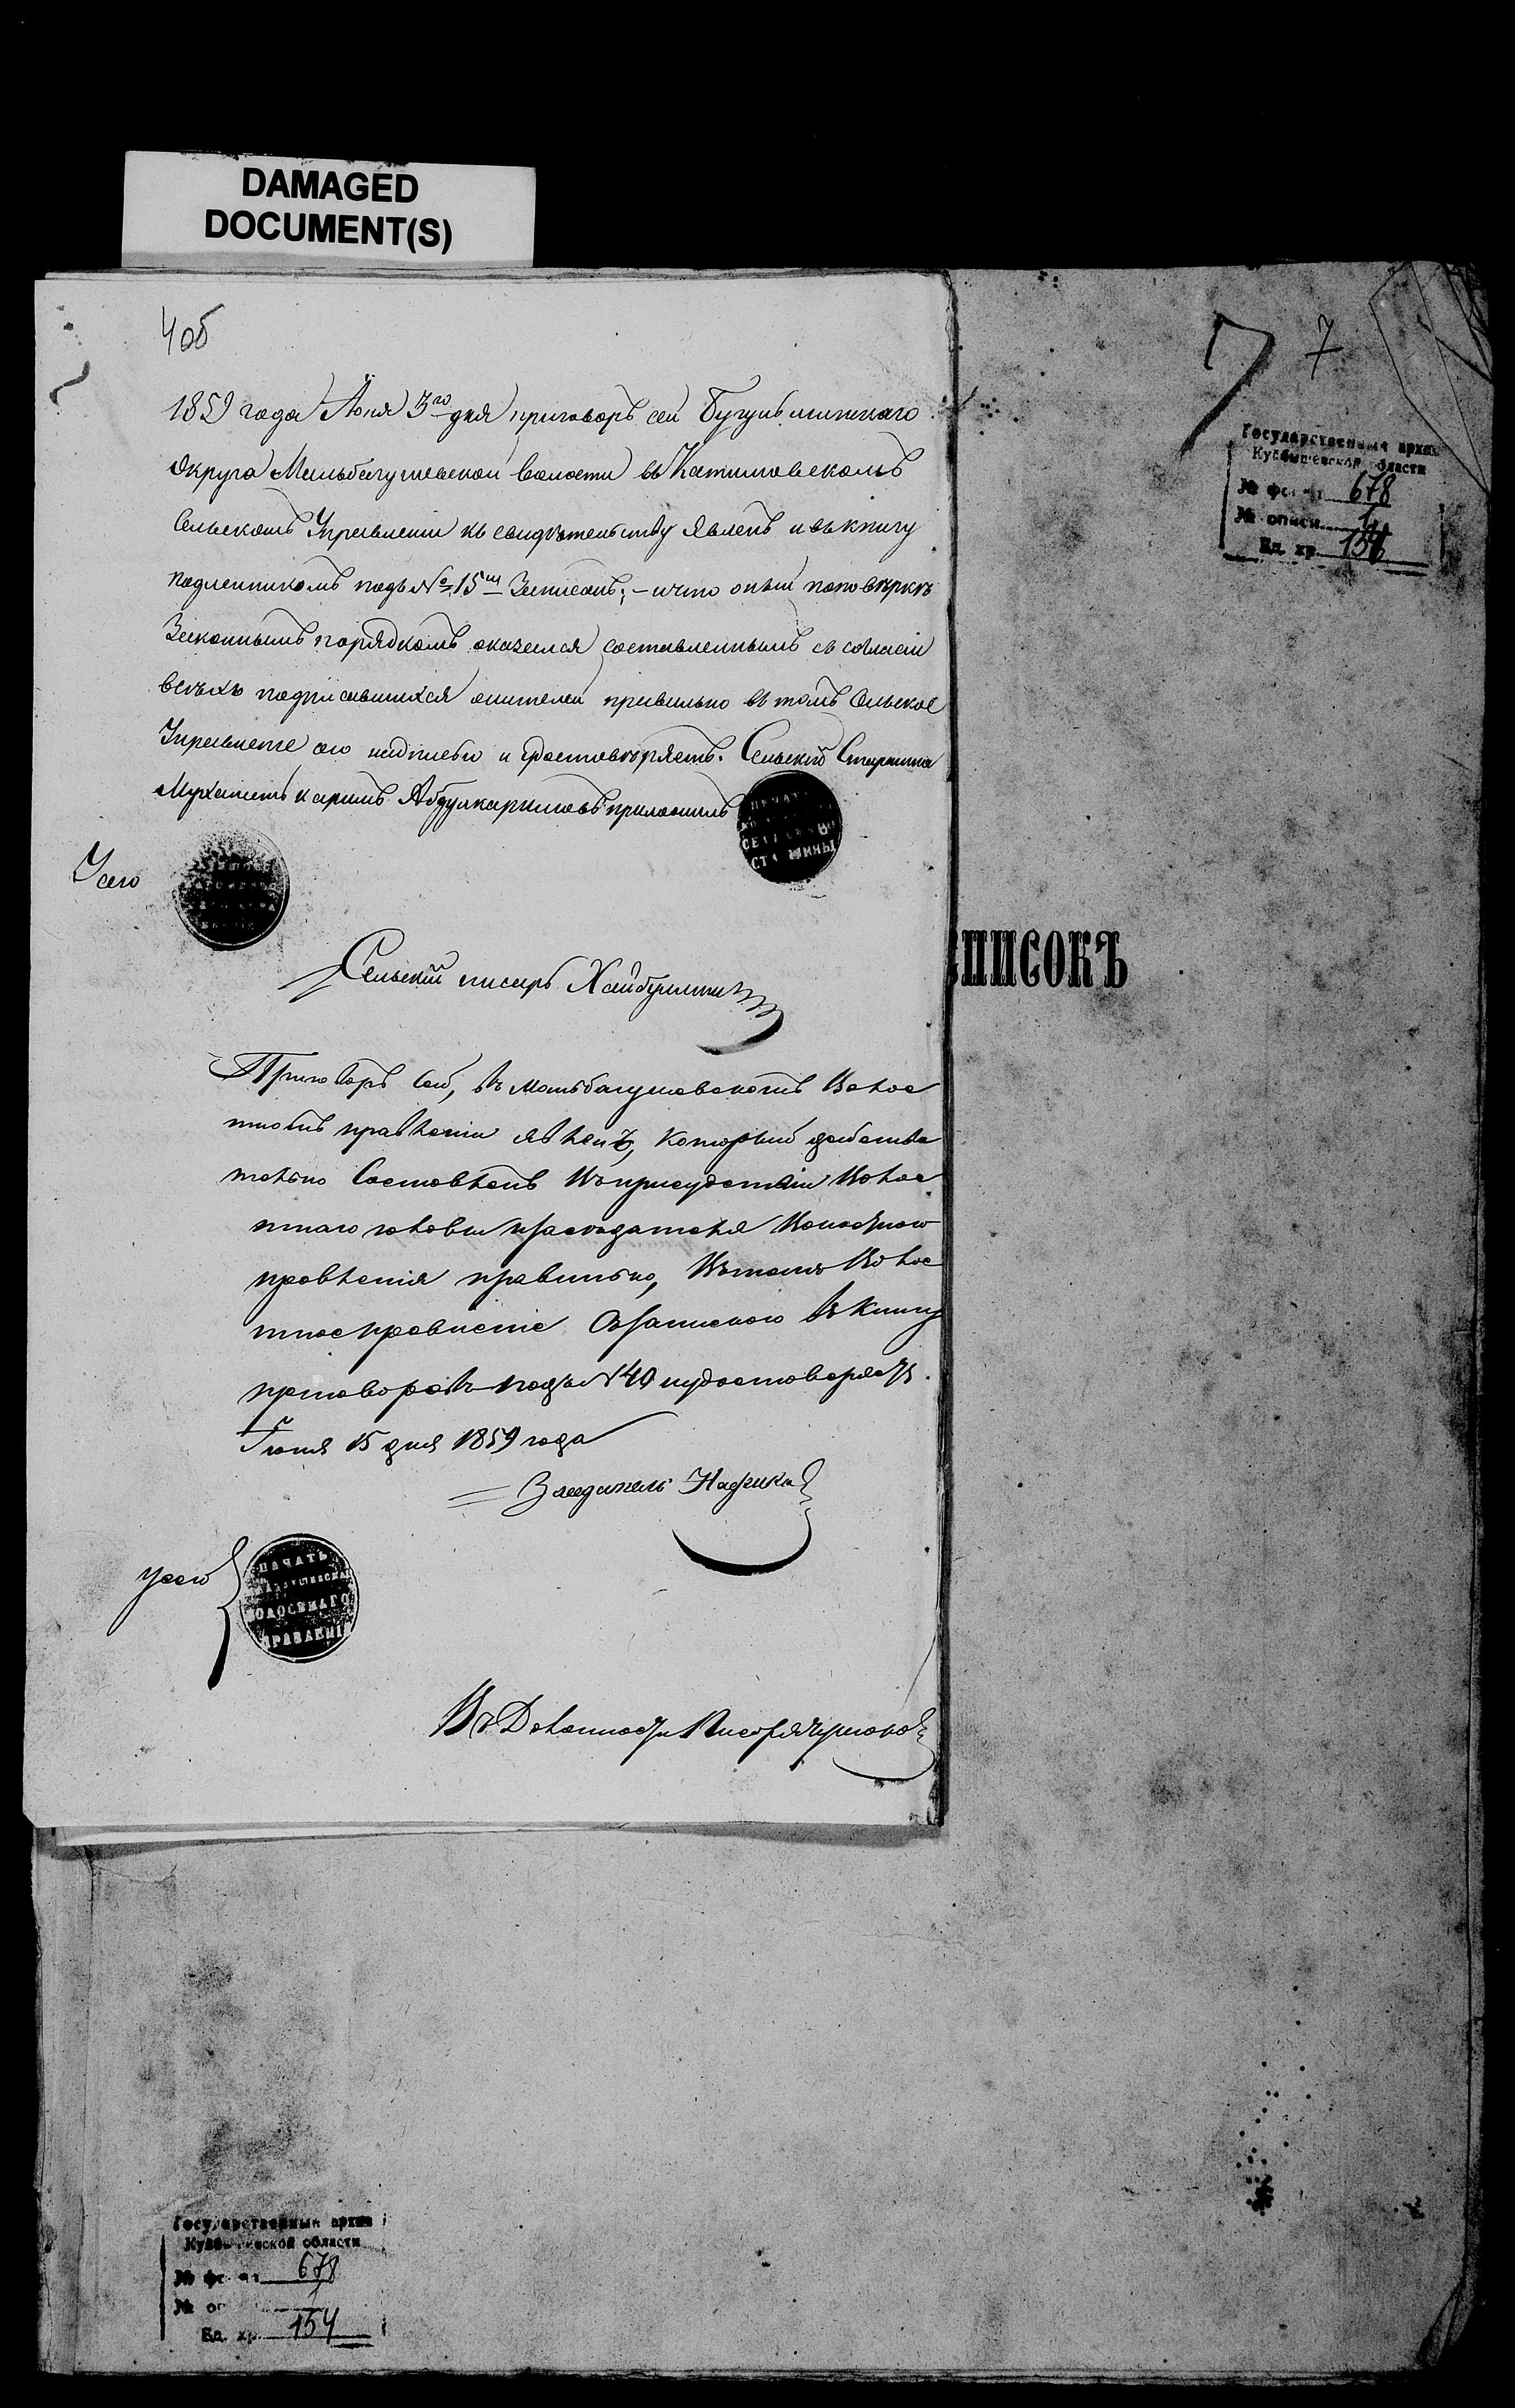 DAMAGED
DOCUMENT(S)
4об
1859 года Июня 3го дня приговоръ сей Бугульминскаго
Округа Мальбагушевской волости въ Катимовскомъ
Сельскомъ Управленіи къ свидѣтельству явленъ и въ книгу
подлинникомъ подъ № 15м записанъ; – и что оный по повѣркѣ
Законнымъ порядкомъ оказался составленнымъ съ согласіи
всѣхъ подписавшихся жителей правильно въ томъ Сельское
Управленіе сею надписью и удостовѣряетъ. Сельскій Старшина
Мухаметъ каримъ Абдулкаримовъ приложилъ
ПЕЧАТЬ
СЕЛЬСКАГО
СТАРШИНЫ
У сего
Сельскій писарь Хайбуллинъ
Приговоръ сей, въ Мальбагушевскомъ Волос
тномъ правленіи явленъ, который действи
тельно Составленъ въ присудствіи Волос
тнаго головы председателя Волостного
правленія правильно, въ томъ Волос
тное правленіе Съ запискою въ Книгу
приговоровъ подъ № 40 и удостоверяетъ.
Іюня 15 дня 1859 года
Заседатель
у сего
ПЕЧАТЬ
ВОЛОСТНАГО
ПРАВЛЕНІЯ
Въ Должности Писаря
7 7
Государственный архив
Куйбышевской области
№ фонда 678
№ описи 1
Ед. хр. 154
СПИСОКЪ
Государственный архив
Куйбышевской области
№ фонда 678
№ описи 1
Ед. хр. 154